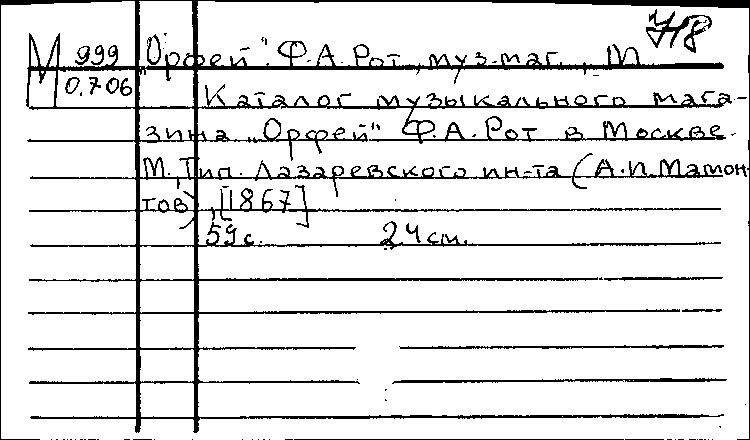 718
М 999 „Орфей". Ф.А. Рот, муз. маг., М
0.706 Каталог музыкального мага-
зина „Орфей" Ф.А. Рот в Москве.
М., Тип. Лазаревского ин-та (А.И. Мамон-
тов), [1867]
59 с. 24 см.